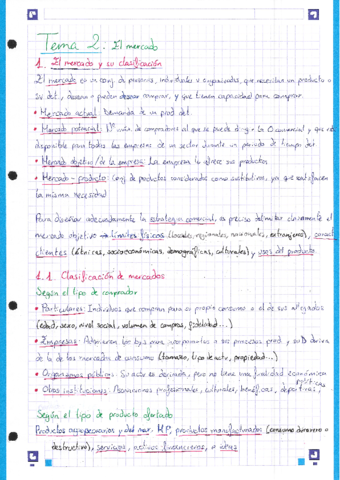 Tema 2. El mercado
1. El mercado y su clasificación
El mercado es un conj. de personas, individuales u organizadas, que necesitan un producto o
su det., desean o pueden desear comprar, y que tienen capacidad para comprar.
• Mercado actual: Demanda de un prod. det.
• Mercado potencial: Nº máx de compradores al que se puede dirigir la O comercial y que está
disponible para todas las empresas de un sector durante un periodo de tiempo det
• Mercado objetivo/de la empresa: La empresa le ofrece sus productos
• Mercado-producto: Conj de productos considerados como sustitutivos, ya que satisfacen
la misma necesidad
Para diseñar adecuadamente la estrategia comercial, es preciso delimitar claramente el
mercado objetivo → límites físicos (locales, regionales, nacionales, extranjeros),
clientes (étnicas, socioeconómicas, demográficas, culturales) y usos del producto
1.1. Clasificación de mercados
Según el tipo de comprador
• Particulares: Individuos que compran para el propio consumo o el de sus allegados
(edad, sexo, nivel social, volumen de compra, fidelidad...)
• Empresas: Adquieren los bys para incorporarlos a sus procesos prod. y su D deriva
de la de los mercados de consumo (tamaño, tipo de activ, propiedad...)
• Organismos públicos: Su activ es derivada, pero no tiene una finalidad económica
• Otras instituciones: Asociaciones profesionales, culturales, benéficas, deportivas, políticas
Según el tipo de producto ofertado
Productos agropecuarios y del mar, MP, productos manufacturados (consumo duradero o
destructivo), servicios, activos financieros, e ideas